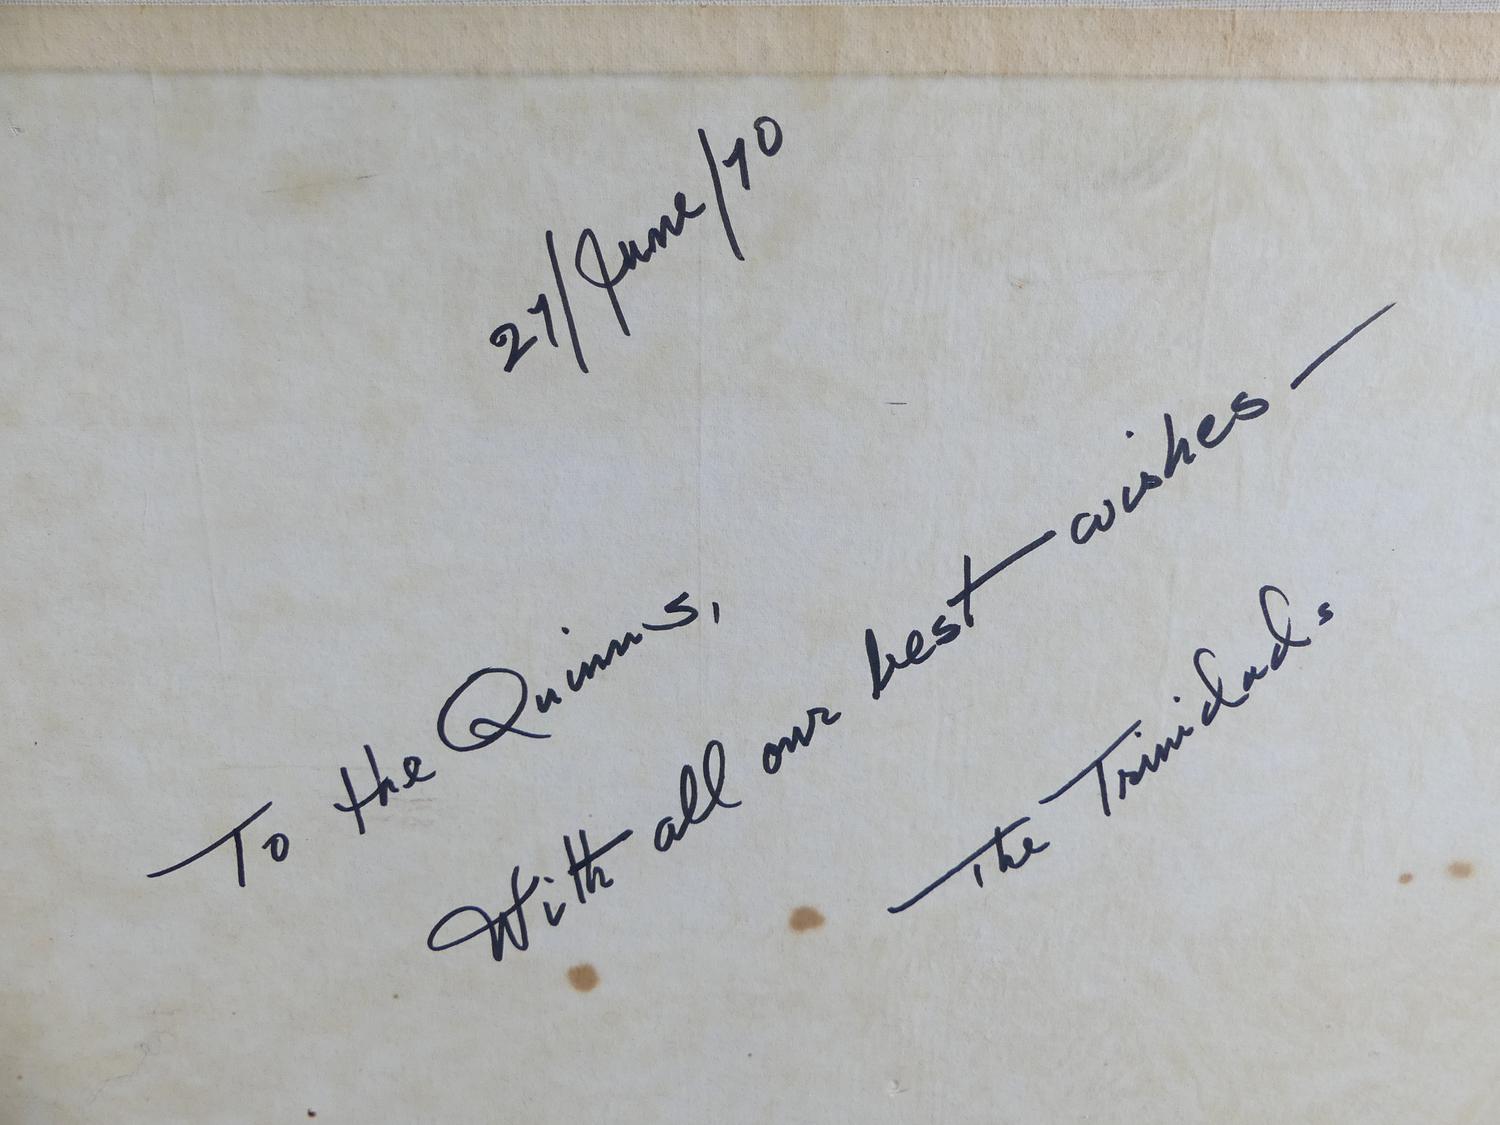 27/June/70
To the Quinns,
With all our best wishes—
The Trinidads